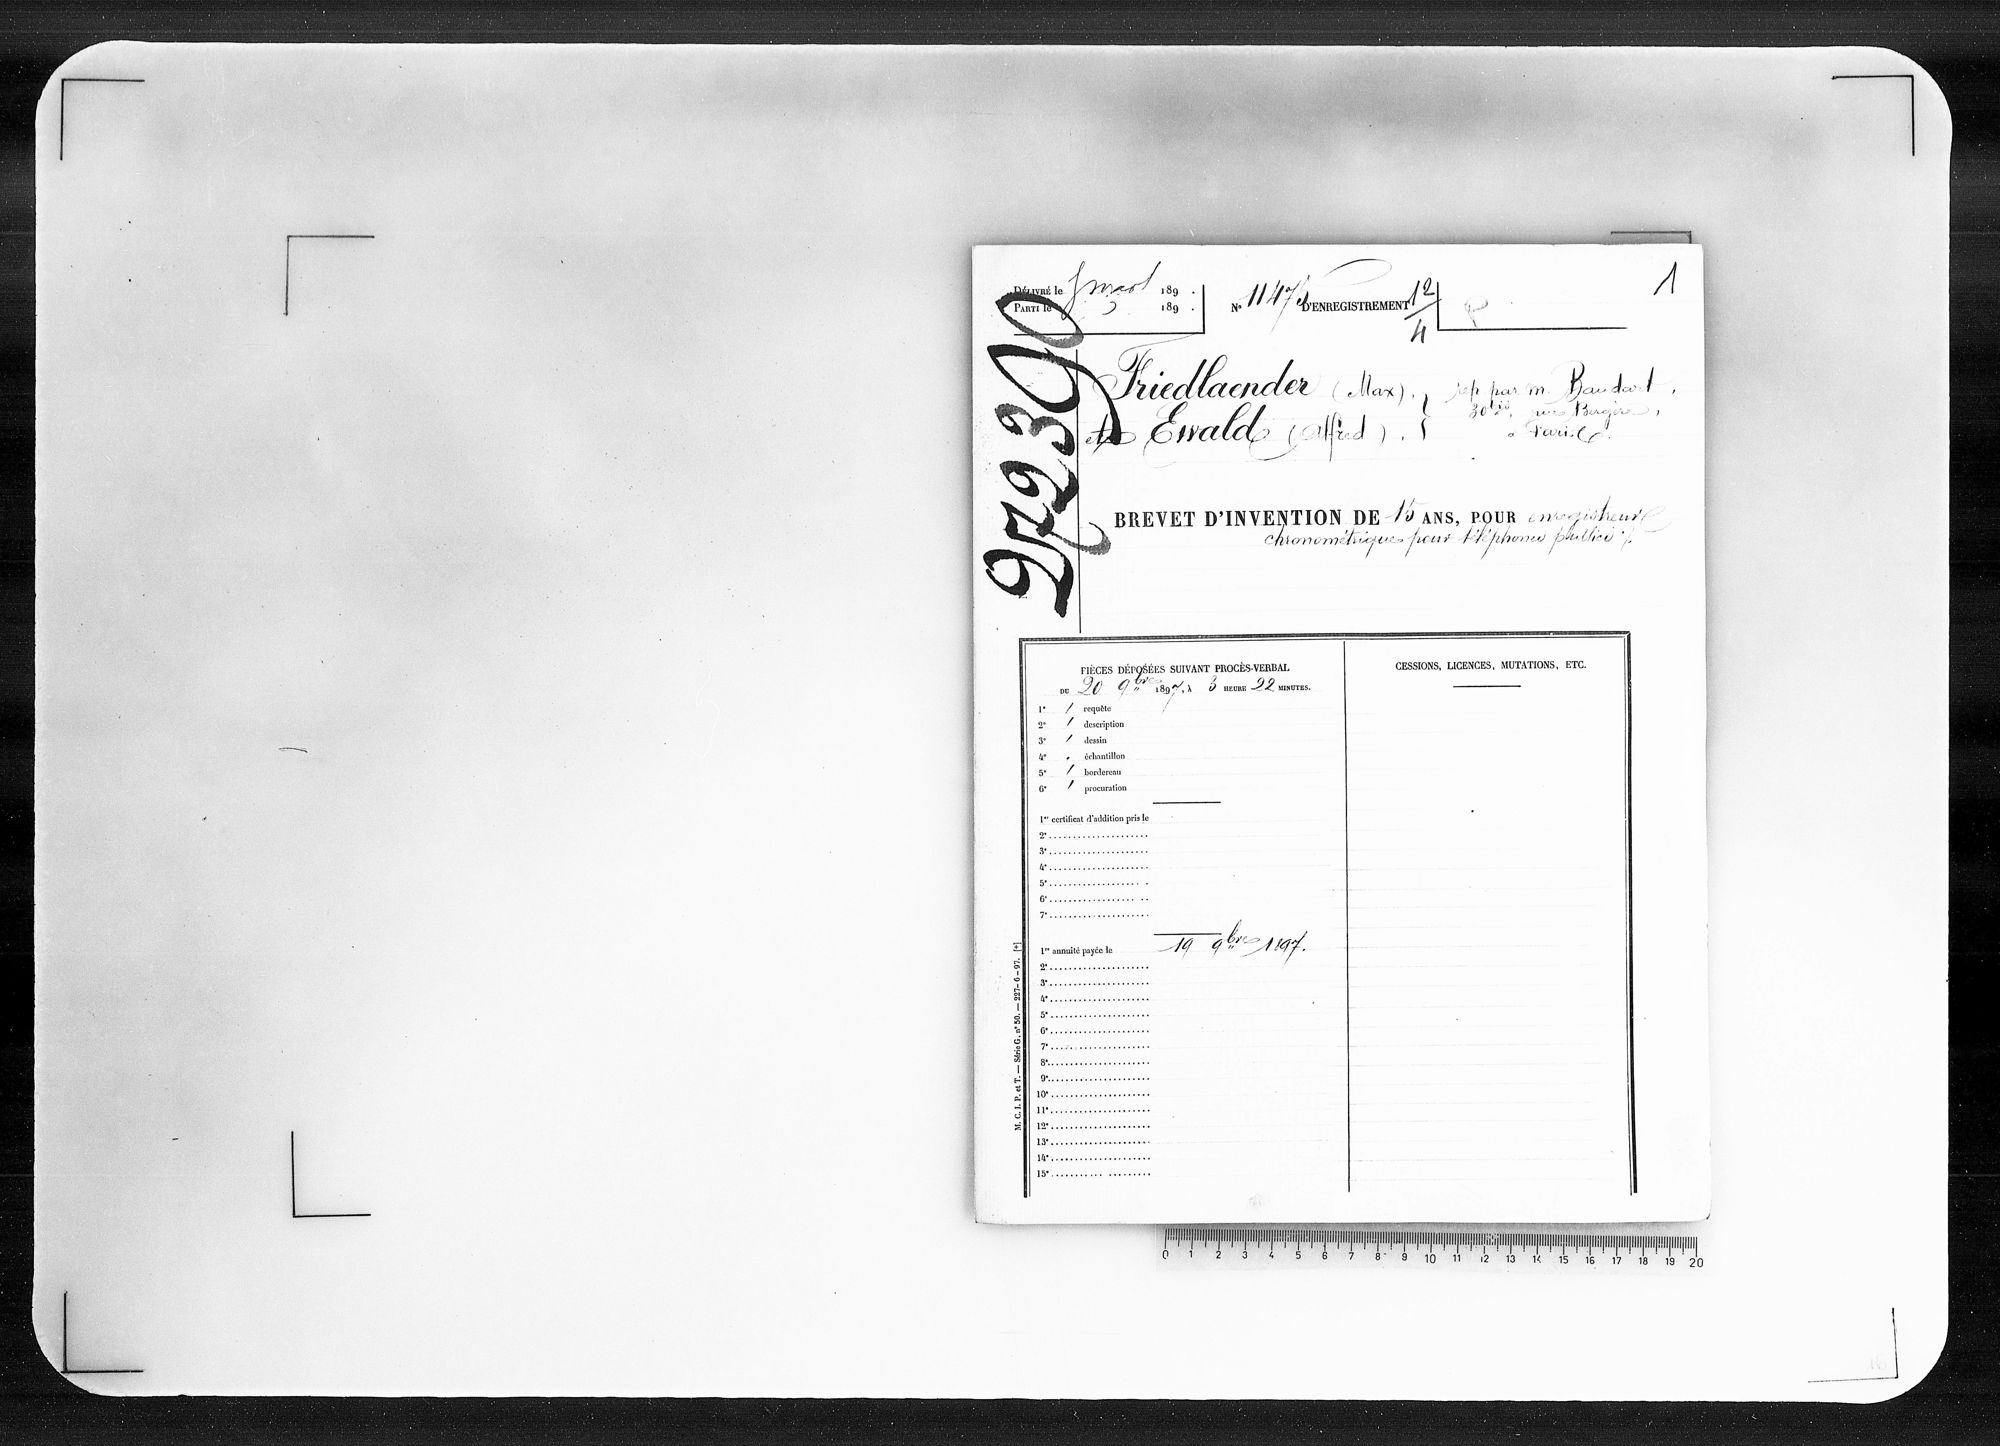 DÉLIVRÉ le 189 .
PARTI le 189 .
N° 11473 D'ENREGISTREMENT 12/4
1
272390
Friedlaender (Max).
et Ewald (Alfred).
rep par M. Baudart,
30 bis, rue Bergère,
à Paris.
BREVET D'INVENTION DE 15 ANS, POUR enregistreur
chronométrique pour téléphones publics
PIÈCES DÉPOSÉES SUIVANT PROCÈS-VERBAL
DU 20 9bre 1897, À 3 HEURE 22 MINUTES.
1° / requête
2° / description
3° / dessin
4° échantillon
5° / bordereau
6° / procuration
1er certificat d'addition pris le
2e
3e
4e
5e
6e
7e
1re annuité payée le 19 9bre 1897.
2e
3e
4e
5e
6e
7e
8e
9e
10e
11e
12e
13e
14e
15e
CESSIONS, LICENCES, MUTATIONS, ETC.
M. C. I. P. et T. — Série G, n° 50. — 227-6-97. [*]
0 1 2 3 4 5 6 7 8 9 10 11 12 13 14 15 16 17 18 19 20